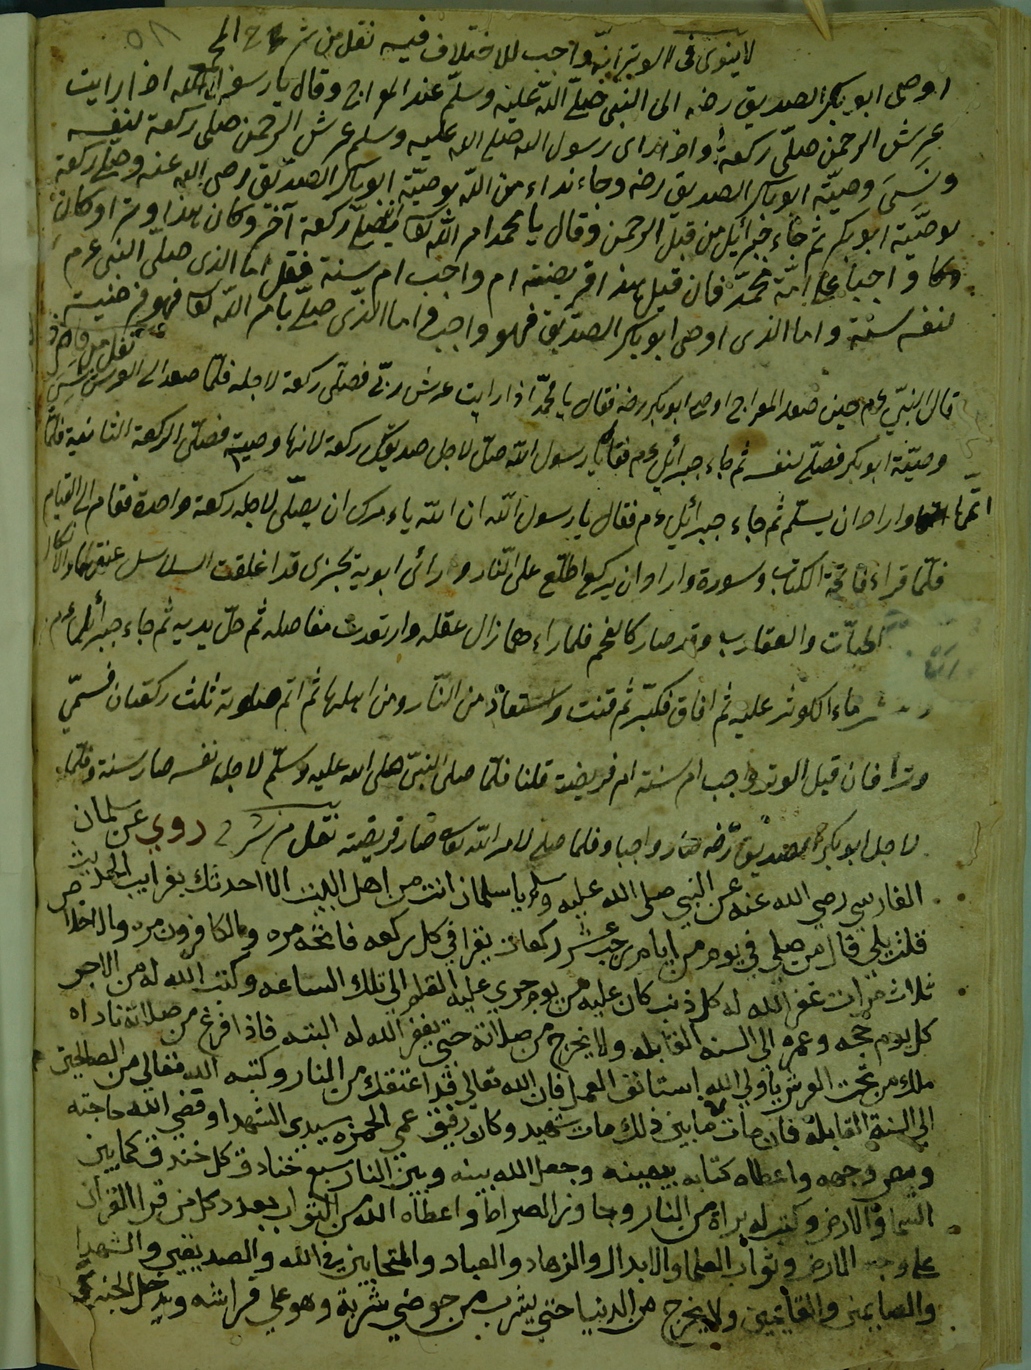 لا ينوى فى الوتر انه واجب للاختلاف فيه نقل من شرح المج
اوصى ابو بكر الصديق رضه الى النبى صلى الله عليه وسلم عند المعراج وقال يا رسول الله اذا رايت
عرش الرحمن صلى ركعة واذا راى رسول الله صلى الله عليه وسلم عرش الرحمن صلى ركعة لنفسه
ونسى وصية ابو بكر الصديق رضه وجاء نداء من الله بوصية ابو بكر الصديق رضى الله عنه وصلى ركعة
بوصية ابو بكر ثم جاء جبرائيل من قبل الرحمن وقال يا محمد امر الله تعا ان يصلى ركعة آخر وكان هذا وترا وكان
واجبا على امة محمد فان قيل هذا فريضة ام واجب ام سنة فقل اما الذى صلى النبى عم
لنفسه سنة واما الذى اوصى ابو بكر الصديق فهو واجب واما الذى صلى بامر الله تعا فهو فرضية
نقل من
قال النبى عم حين صعد المعراج اوصى ابو بكر رضه فقال يا محمد اذا رايت عرش ربى فصلى ركعة لاجله فلما صعد الى العرش نسى
وصية ابو بكر فصلى لنفسه ثم جاء جبرائيل عم فقال يا رسول الله صل لاجل صديقك ركعة لانها وصية فصلى الركعة الثانية فلما
اتمها واراد ان يسلم ثم جاء جبرائيل عم فقال يا رسول الله ان الله ياءمرك ان يصلى لاجله ركعة واحدة فقام الى القيام
فلما قراء فاتحة الكتاب وسورة واراد ان يركع اطلع على النار وارائى ابويه يجزى قد اغلقت السلاسل عنقهما والانكال
الحيات والعقارب وقد صار كالفحم فلما راءهما زال عقله وارتعدت مفاصله ثم حل يديه ثم جاء جبرائيل عم
ماء الكوثر عليه ثم افاق فكبر ثم قنت واستعاذ من النار ومن اهلها ثم اتم صلوته ثلث ركعتان فسمى
وترا فان قيل الوتر واجب ام سنة ام فريضة قلنا فلما صلى النبى صلى الله عليه وسلم لاجل نفسه صار سنة وفلما
لاجل ابو بكر الصديق رضه صار واجبا وفلما صلى لامر الله تعا صار فريضة نقل من شر روي عن سلمان
الفارسي رضي الله عنه عن النبي صلى الله عليه وسلم يا سلمان انت من اهل البيت الا احدثك بغرايب الحديث
قلت بلي قال من صلي في يوم من ايام رجب عشر ركعات يقرا في كل ركعه فاتحه مره والكافرون مره والاخلاص
ثلاث مرات غفر الله له كل ذنب كان عليه من يوم جري عليه القلم الي تلك الساعه وكتب الله له من الاجر
كل يوم حجه وعمره الي السنه القابله ولا يخرج من صلاته حتي يغفر الله له البته فاذا فرغ من صلاته ناداه
ملك من تحت العرش يا ولي الله استانف العمل فان الله تعالي قد اعتقك من النار وكتبه الله تعالي من الصالحين
الي السنة القابلة فان مات ما بين ذلك مات شهيد وكان رفيق عمي الحمزه سيدي الشهدا وقضي الله حاجته
وبيض وجهه واعطاه كتابه بيمينه وجعل الله بينه وبين النار سبع خنادق كل خندق كما بين
السما والارض وكتب له براة من النار وجاوز الصراط واعطاه الله من الثواب بعدد كل من قرا القران
على وجه الارض وثواب العلما والابدال والزهاد والعباد والمتحابين في الله والصديقين والشهدا
والصايمين والقايمين ولا يخرج من الدنيا حتي يشرب من حوضي شربة وهو علي فراشه ويدخل الجنه